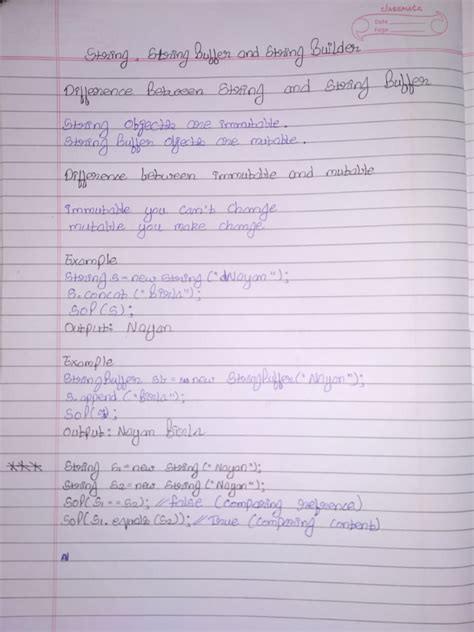 classmate
Date
Page
String, String Buffer and String Builder
Difference Between String and String Buffer
String objects are immutable.
String Buffer objects are mutable.
Difference between immutable and mutable
immutable you can't change
mutable you make change.
Example
String s=new String ("Nayan");
S.concat ("Birla");
SOP(S);
Output: Nayan
Example
StringBuffer = new StringBuffer("Nayan");
S.append ("Birla");
SOP(S);
Output: Nayan Birla
*** String S1=new String ("Nayan");
String S2=new String ("Nayan");
SOP(S1==S2); //false (comparing reference)
SOP(S1.equals(S2)); //True (comparing content)
N